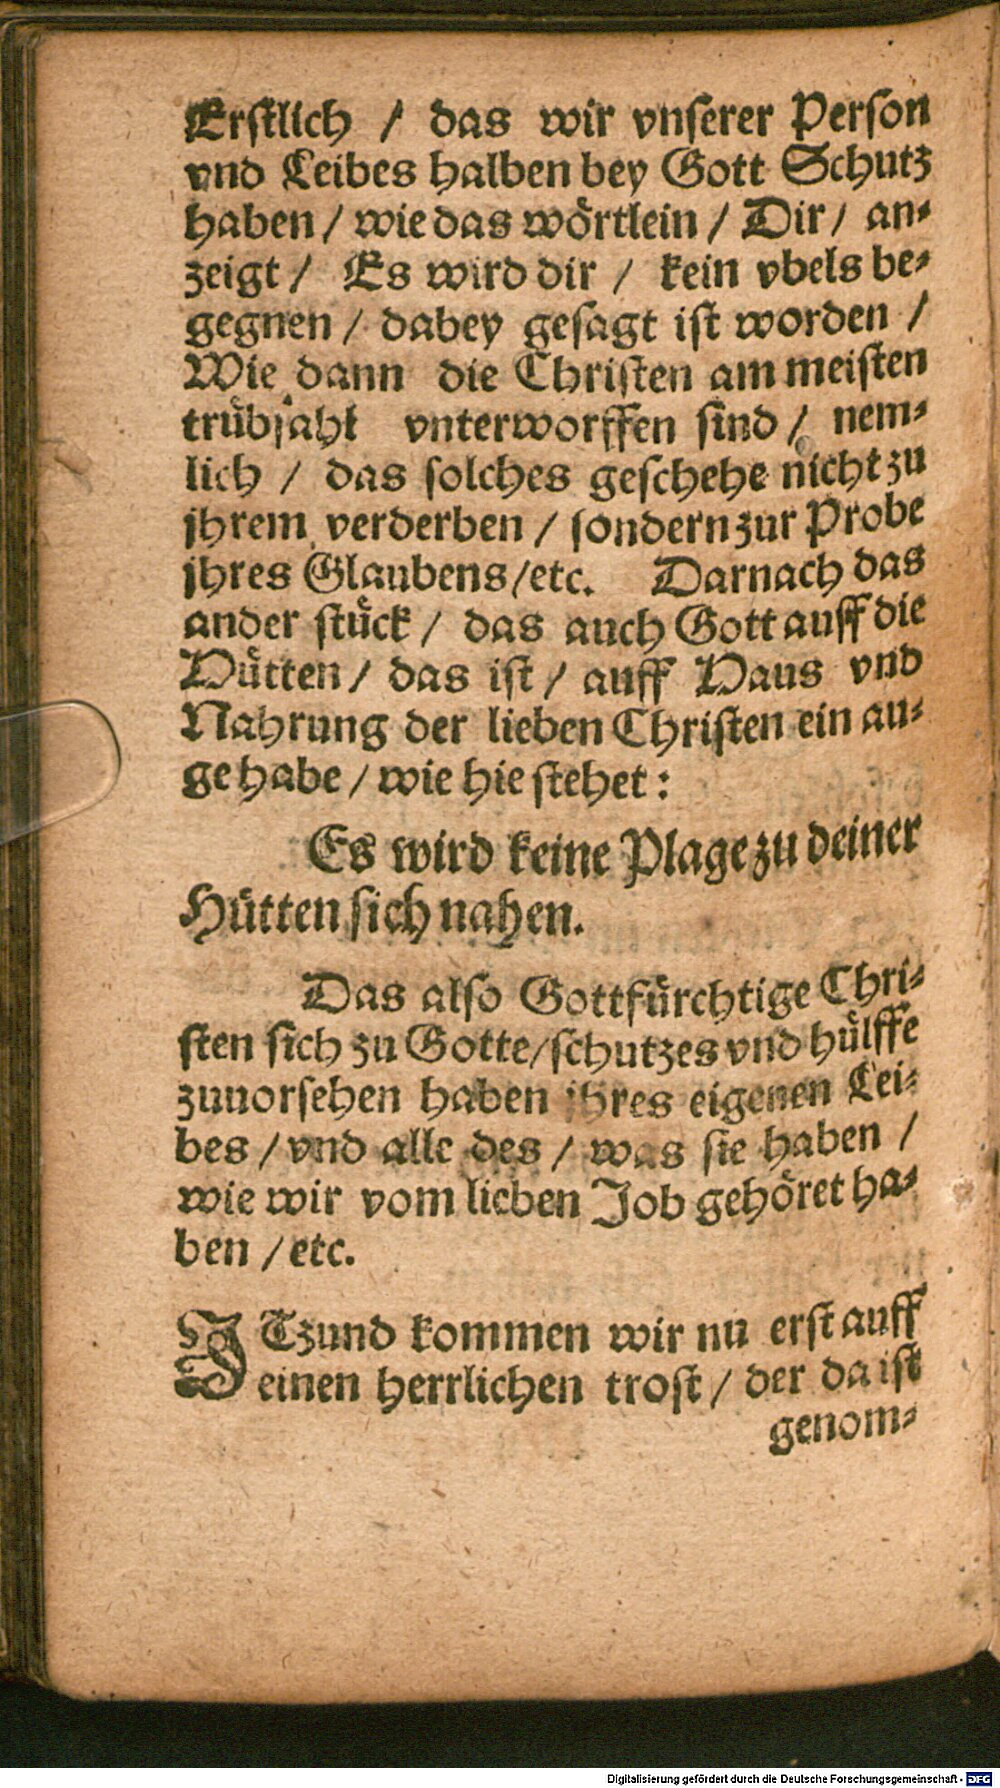 Erstlich / das wir vnserer Person
vnd Leibes halben bey Gott Schutz
haben / wie das wörtlein / Dir / an-
zeigt / Es wird dir / kein vbels be-
gegnen / dabey gesagt ist worden /
Wie dann die Christen am meisten
trübsahl vnterworffen sind / nem-
lich / das solches geschehe nicht zu
jhrem verderben / sondern zur Probe
jhres Glaubens / etc. Darnach das
ander stück / das auch Gott auff die
Hütten / das ist / auff Haus vnd
Nahrung der lieben Christen ein au-
ge habe / wie hie stehet:
Es wird keine Plage zu deiner
Hütten sich nahen.
Das also Gottfürchtige Chri-
sten sich zu Gotte / schutzes vnd hülffe
zuuorsehen haben jhres eigenen Lei-
bes / vnd alle des / was sie haben /
wie wir vom lieben Job gehöret ha-
ben / etc.
JTzund kommen wir nu erst auff
einen herrlichen trost / der da ist
genom-
Digitalisierung gefördert durch die Deutsche Forschungsgemeinschaft - DFG